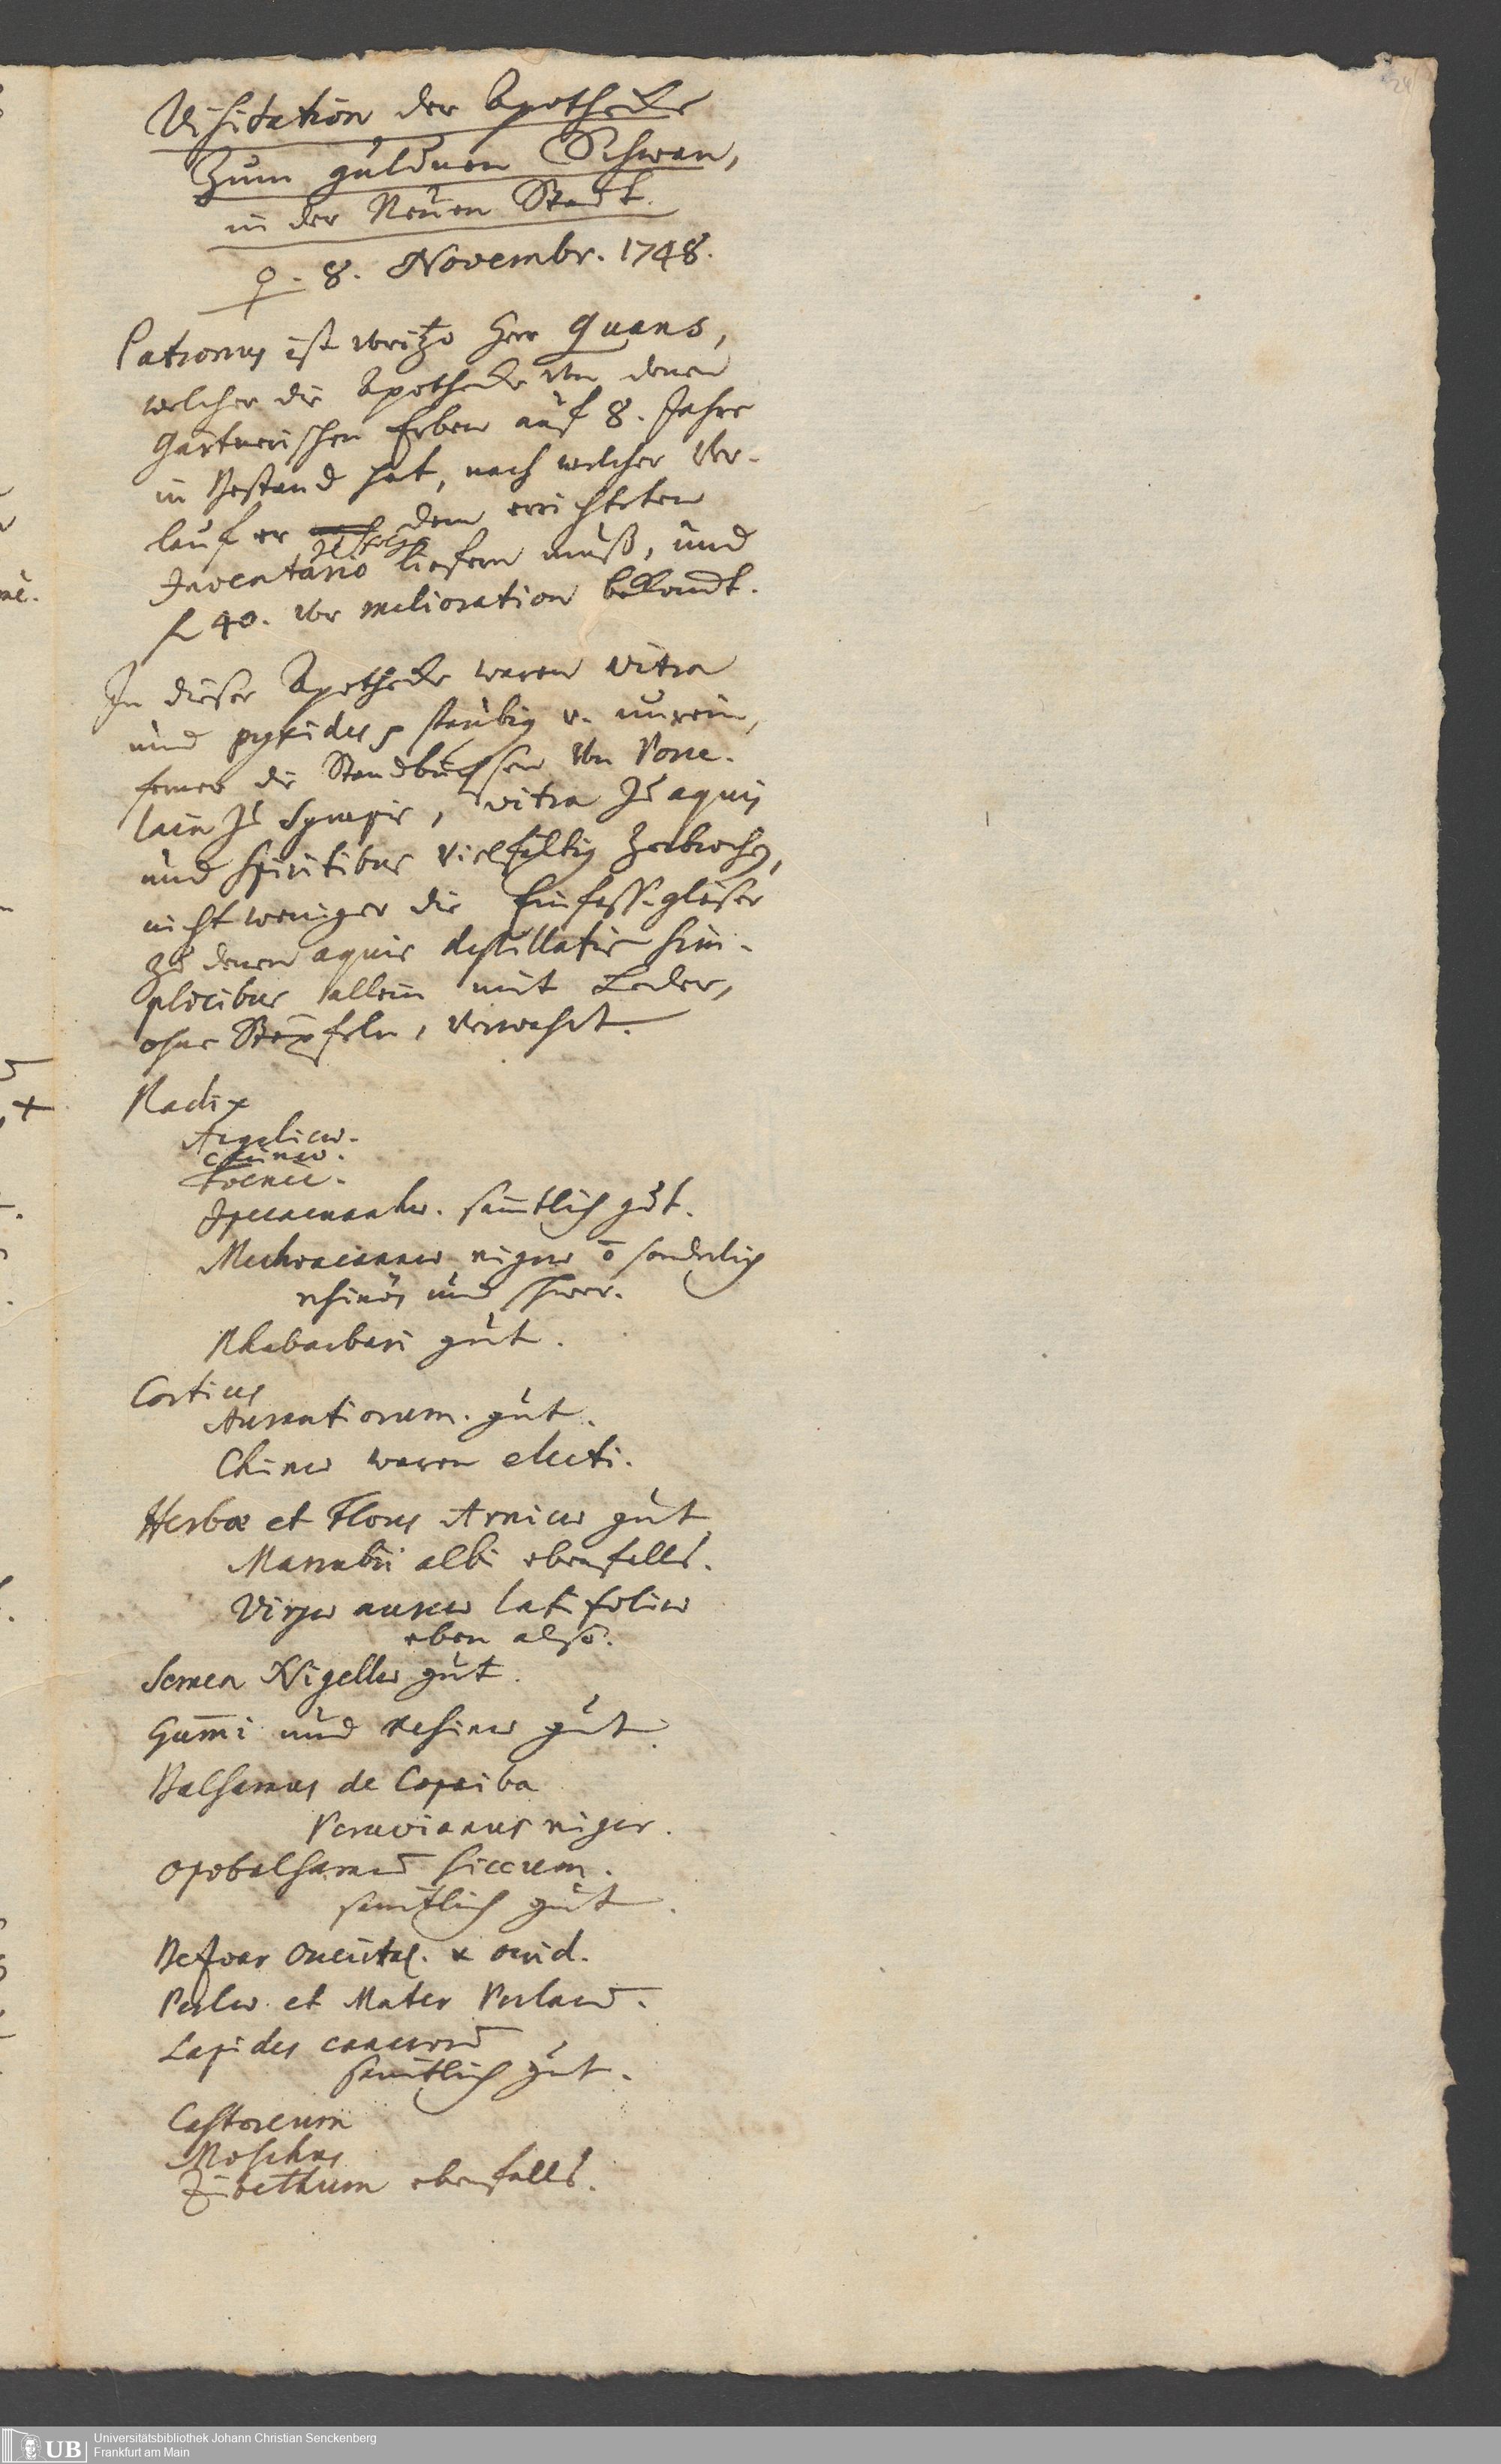 Visitation der Apothecke
Zum güldnen Schwan,
in der Neuen Stadt.
♀. 8. Novembr. 1748.
Patronus ist itzo Herr Quans,
welcher die Apothecke von denen
Gärtnerischen Erben auf 8. Jahre
in Bestand hat, nach welcher Ver-
lauf er dem errichteten
Inventario liefern muß, und
f 40. vor melioration bekomt.
In dieser Apothecke waren vitra
und pyxides staubig u. unrein,
ferner die Standbüchsen von Porce-
lain zu Syrupis, vitra zu aquis
und spiritibus vielfältig zerbrochen,
nicht weniger die Einfass-gläser
zu denen aquis destillatis sim-
plicibus allein mit Leder,
ohne Stöpfeln, verwahrt.
Radix
Angelicæ.
Chinæ.
Ipecacuanhæ. sämtlich gut.
Mechoacannæ nigræ sonderlich
resinös und schwer.
Rhabarbari gut.
Cortices
Aurantiorum. gut.
Chinæ waren electi.
Herbæ et Flores Arnicæ gut
Marrubii albi ebenfalls.
Virgæ aureæ latifoliæ
eben also.
Semen Nigellæ gut.
Gum̄i und resinæ gut.
Balsamus de Copaiba
Peruvianus niger.
Opobalsamum siccum.
sämtlich gut.
Bezoar oriental. & occid.
Perlæ et Mater Perlarum.
Lapides cancrorum
sämtlich gut.
Castoreum
Moschus
Zibethum ebenfalls.
UB
Universitätsbibliothek Johann Christian Senckenberg
Frankfurt am Main